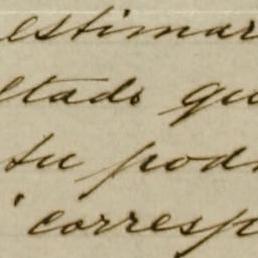 estimar
ltado qu
tu pod
corresp